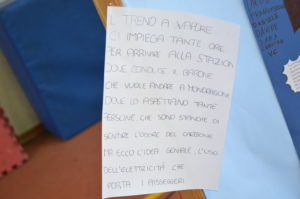 IL TRENO A VAPORE
CI IMPIEGA TANTE ORE
PER ARRIVARE ALLA STAZION
DOVE CONDUCE IL BARONE
CHE VUOLE ANDARE A MONDRAGONE
DOVE LO ASPETTANO TANTE
PERSONE CHE SONO STANCHE DI
SENTIRE L'ODORE DEL CARBONE
MA ECCO L'IDEA GENIALE, L'USO
DELL'ELETTRICITÀ CHE
PORTA I PASSEGGERI
DAVIDE